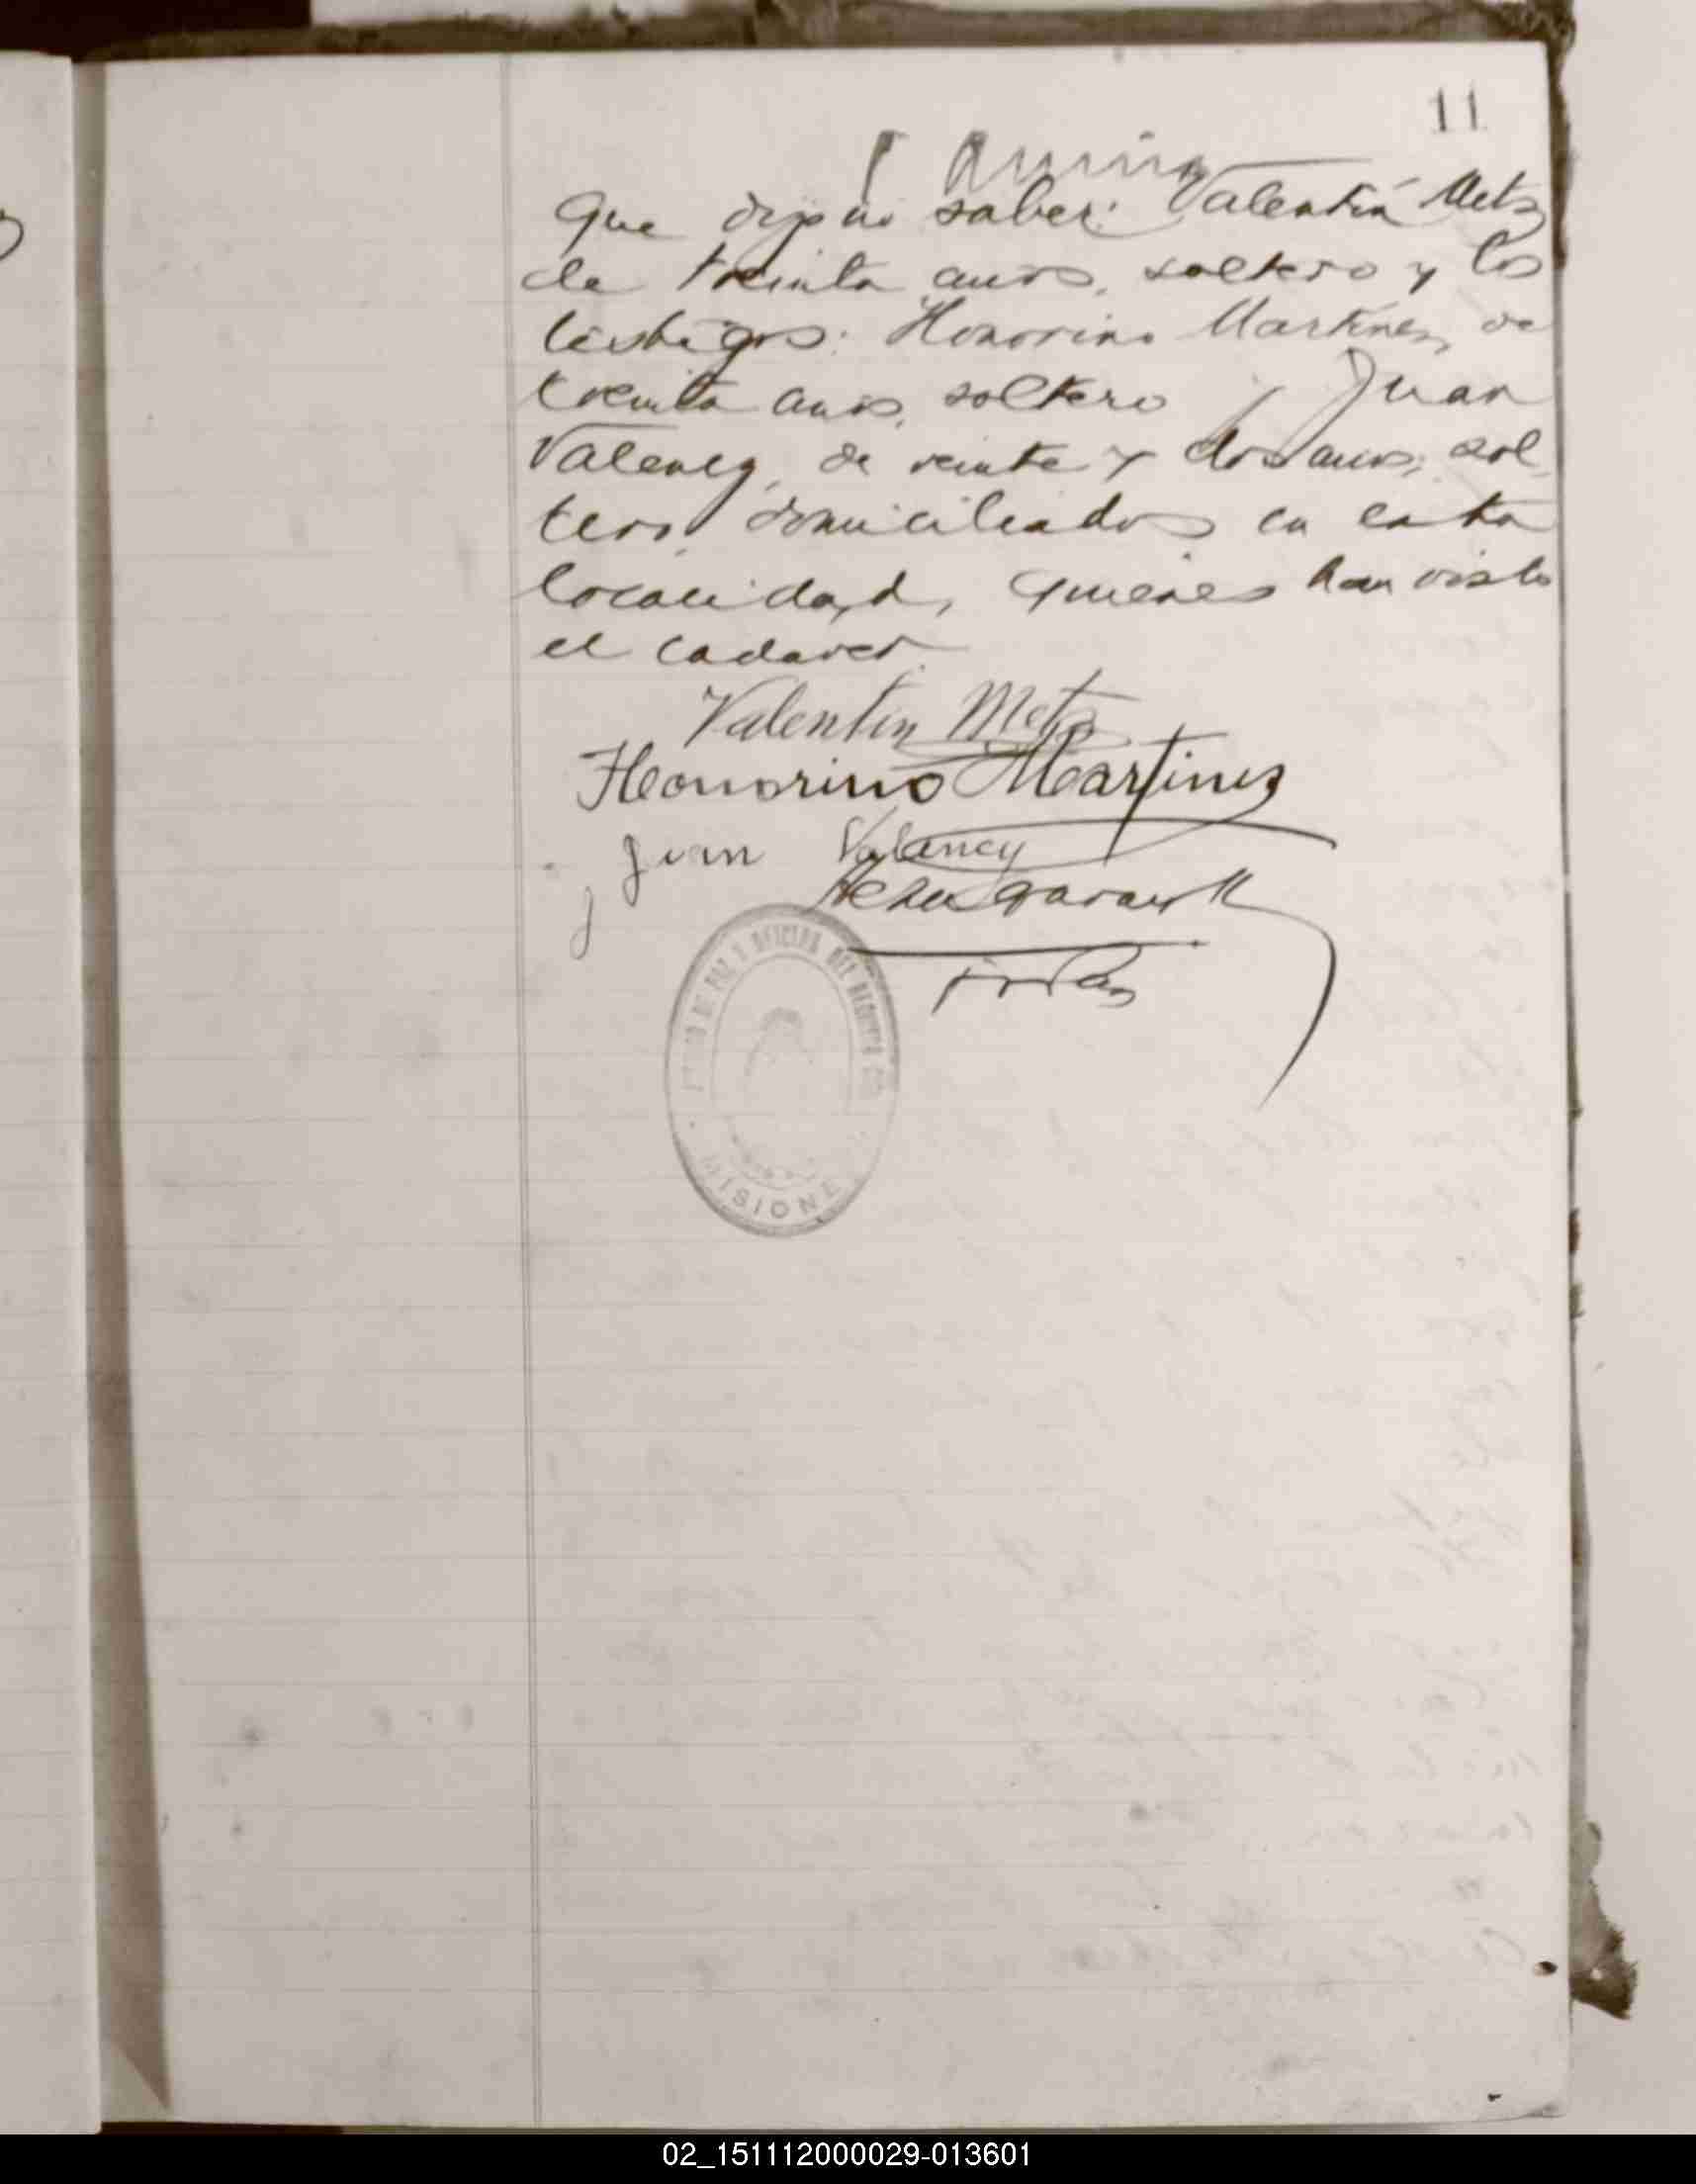 11
que dijo no saber: Valentín Metz
de treinta anos, soltero y los
testigos: Honorino Martinez, de
treinta anos, soltero y Juan
Valency, de veinte y dos anos, sol
tero, domiciliados en esta
localidad, quienes han visto
el cadaver.
Valentin Metz
Honorino Martinez
Juan Valency
DE PAZ Y OFICINA DEL REGISTRO
MISIONE
02_151112000029-013601